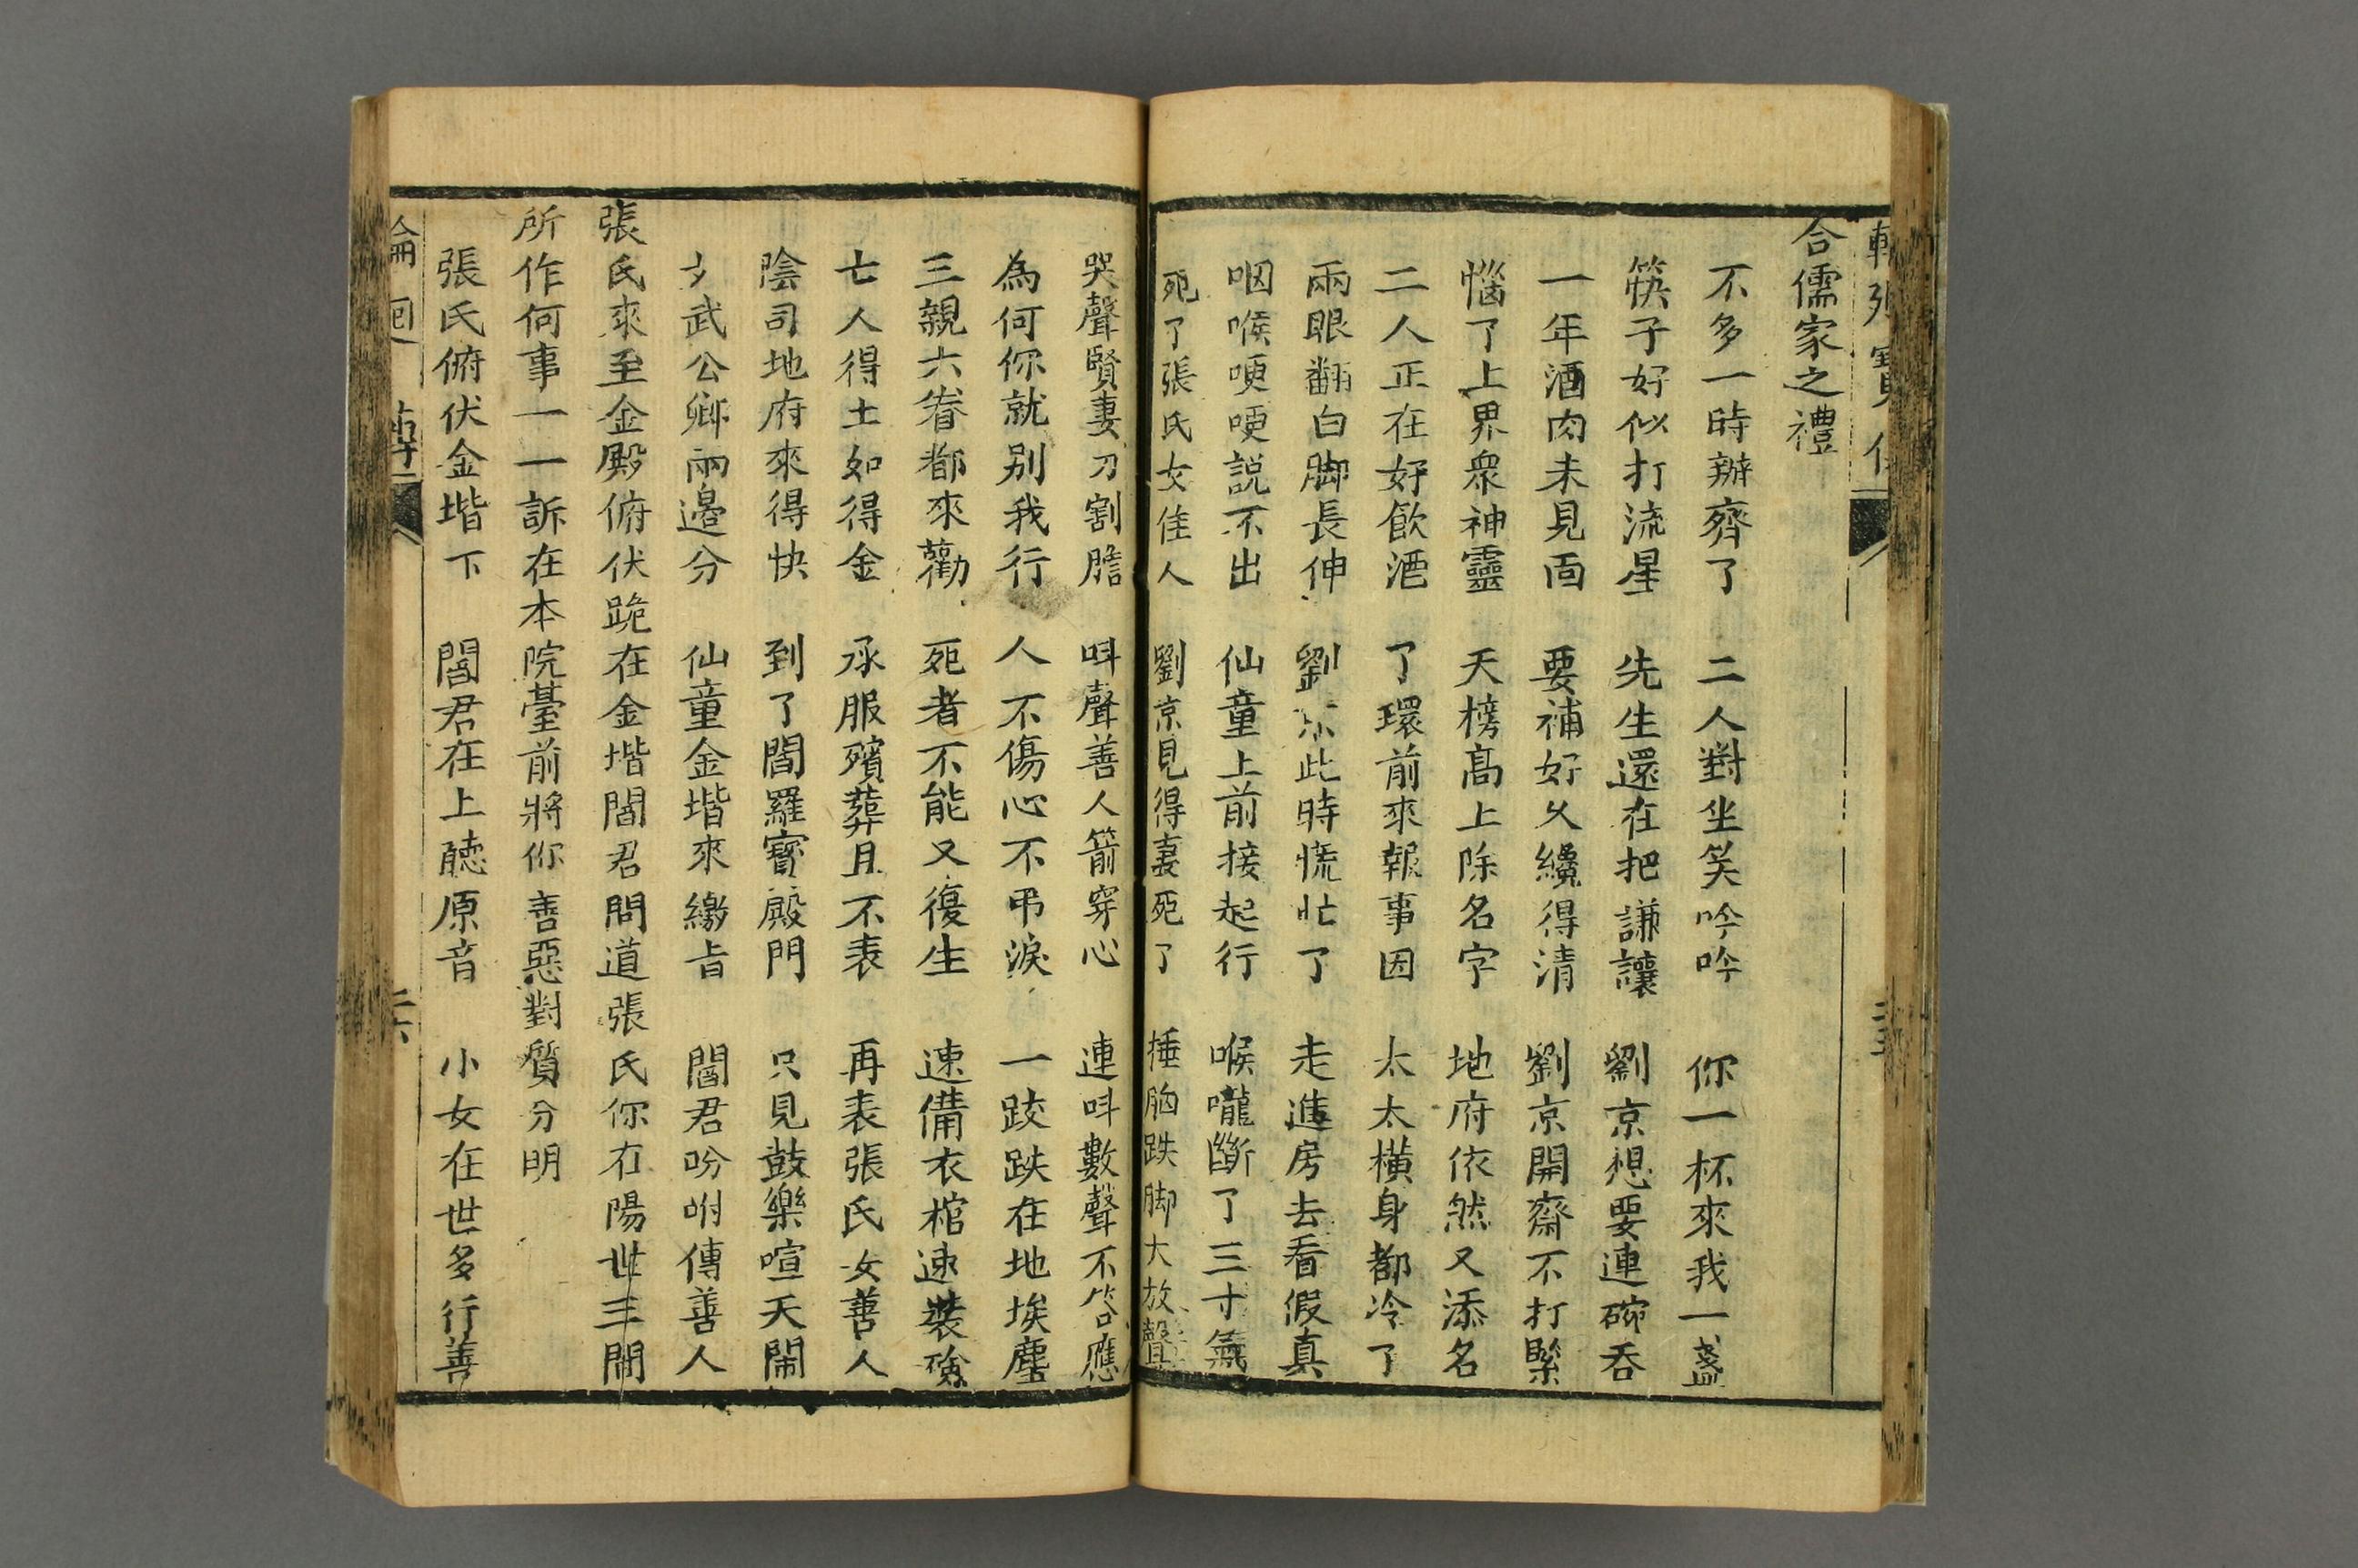 合儒家之禮
不多一時辦齊了 二人對坐笑吟吟 你一杯來我一盞
筷子好似打流星 先生還在把謙讓 劉京想要連碗吞
一年酒肉未見面 要補好久纔得清 劉京開齋不打緊
惱了上界衆神靈 天榜高上除名字 地府依然又添名
二人正在好飲酒 了環前來報事因 太太橫身都冷了
兩眼翻白脚長伸 劉京此時慌忙了 走進房去看假真
咽喉哽哽説不出 仙童上前接起行 喉嚨斷了三寸氣
死了張氏女佳人 劉京見得妻死了 捶胸跌脚大放聲
哭聲賢妻刀割膽 呌聲善人箭穿心 連呌數聲不答應
為何你就别我行 人不傷心不弔淚 一跤跌在地埃塵
三親六眷都來勸 死者不能又復生 速備衣棺速裝殮
亡人得土如得金 承服殯葬且不表 再表張氏女善人
陰司地府來得快 到了閻羅寳殿門 只見鼓樂喧天鬧
文武公卿兩邊分 仙童金堦來繳旨 閻君吩咐傳善人
張氏來至金殿俯伏跪在金堦閻君問道張氏你在陽世三間
所作何事一一訴在本院臺前將你善惡對質分明
張氏俯伏金堦下 閻君在上聽原音 小女在世多行善
輪回 傳 二六